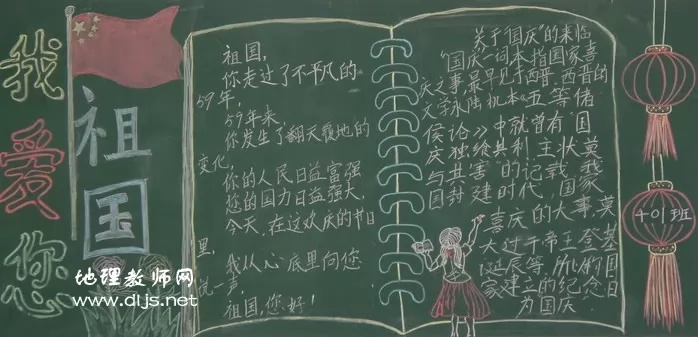 我
爱
您
祖
国
祖国,
你走过了不平凡的
59年,
59年来,
你发生了翻天覆地的
变化,
你的人民日益富强
您的国力日益强大,
今天,在这欢庆的节日
里,
我从心底里向您
说一声,
祖国,您好!
关于“国庆”的来临
“国庆”一词本指国家喜
庆之事,最早见于西晋。西晋的
文学家陆机在《五等诸
侯论》中就曾有“国
庆独飨其利,主忧莫
与其害”的记载,我
国封建时代,国家
喜庆的大事,莫
大过于帝王登基
诞辰等,
家建立的纪念日
为国庆.
401班
地理教师网
www.dljs.net